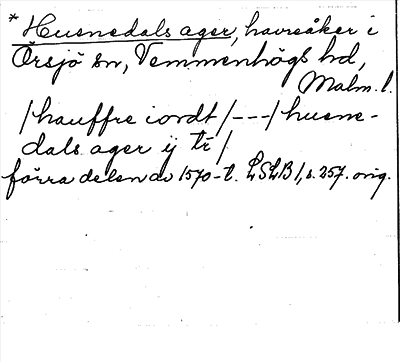 * Husnedals ager, havreåker i
Örsjö sn, Vemmenhögs hd,
Malm. l.
/ hauffre iordt / --- / husne-
dals ager ij tr /
förra delen av 1570-t. LSLB 1, s. 257. orig.